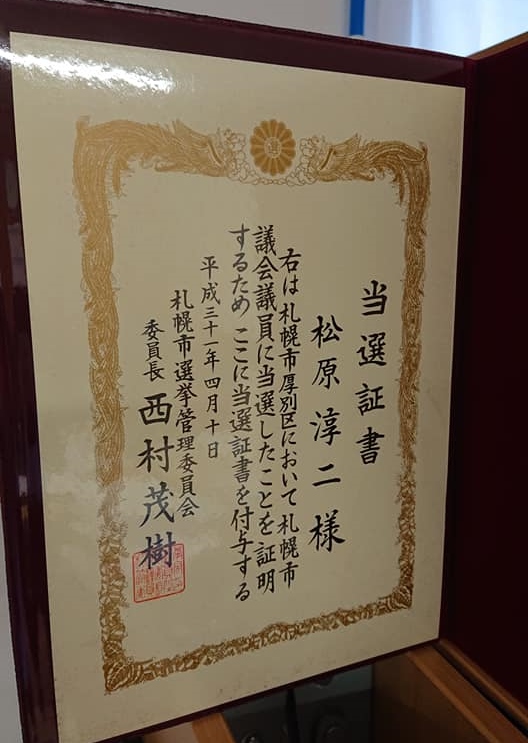 当選証書
松原淳二様
右は札幌市厚別区において札幌市
議会議員に当選したことを証明
するため ここに当選証書を付与する
平成三十一年四月十日
札幌市選挙管理委員会
委員長 西村茂樹